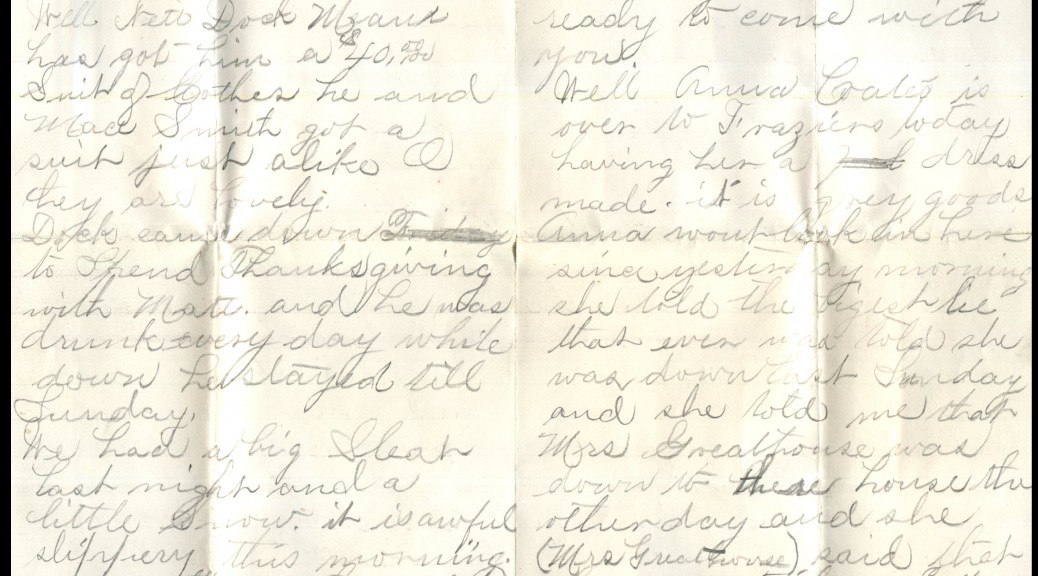 Well Nett Dock Means
has got him a $40.00
Suit of Clothes he and
Mace Smith got a
suit just alike O
they are lovely.
Dock came down Friday
to Spend Thanksgiving
with Matt. and he was
drunk every day while
down he stayed till
Sunday.
We had a big Sleat
last night and a
little Snow. it is awful
slippery this morning.
ready to come with
you.
Well Anna Coates is
over to Fraziers today
having her a dress
made. it is grey goods
Anna wont look in here
since yesterday morning
she told the bigest lie
that ever was told she
was down last Sunday
and she told me that
Mrs Greathouse was
down to there house the
other day and she
(Mrs Greathouse) said that